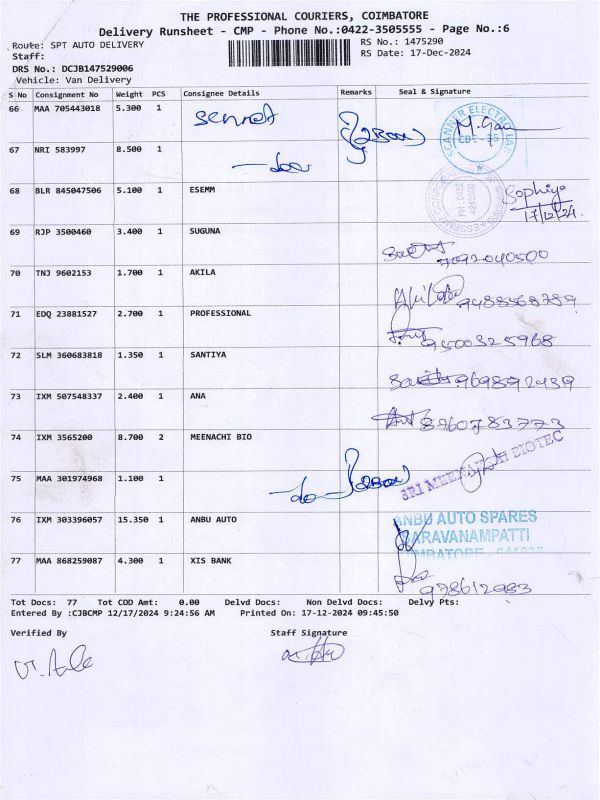 THE PROFESSIONAL COURIERS, COIMBATORE
Delivery Runsheet - CMP - Phone No.:0422-3505555 - Page No.:6
Route: SPT AUTO DELIVERY
RS No.: 1475290
Staff:
RS Date: 17-Dec-2024
DRS No.: DCJB147529006
Vehicle: Van Delivery
S No Consignment No Weight PCS Consignee Details Remarks Seal & Signature
66 MAA 705443018 5.300 1
SCANNER ELECTRO
67 NRI 583997 8.500 1
68 BLR 845047506 5.100 1 ESEMM Sophiya
17/12/24.
69 RJP 3500460 3.400 1 SUGUNA 7092040500
70 TNJ 9602153 1.700 1 AKILA 9488568789
71 EDQ 23881527 2.700 1 PROFESSIONAL 9500325968
72 SLM 360683818 1.350 1 SANTIYA 9698992439
73 IXM 507548337 2.400 1 ANA 8760783773
74 IXM 3565200 8.700 2 MEENACHI BIO SRI MEENAKSHI BIOTEC
75 MAA 301974968 1.100 1 -do-
76 IXM 303396057 15.350 1 ANBU AUTO ANBU AUTO SPARES
SARAVANAMPATTI
77 MAA 868259087 4.300 1 XIS BANK
Tot Docs: 77 Tot COD Amt: 0.00 Delvd Docs: Non Delvd Docs: Delvy Pts:
Entered By :CJBCMP 12/17/2024 9:24:56 AM Printed On: 17-12-2024 09:45:50
Verified By Staff Signature